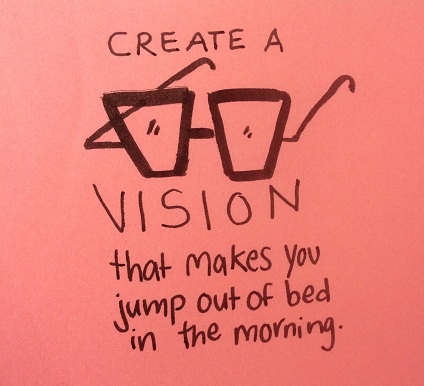 CREATE A
VISION
that makes you
jump out of bed
in the morning.